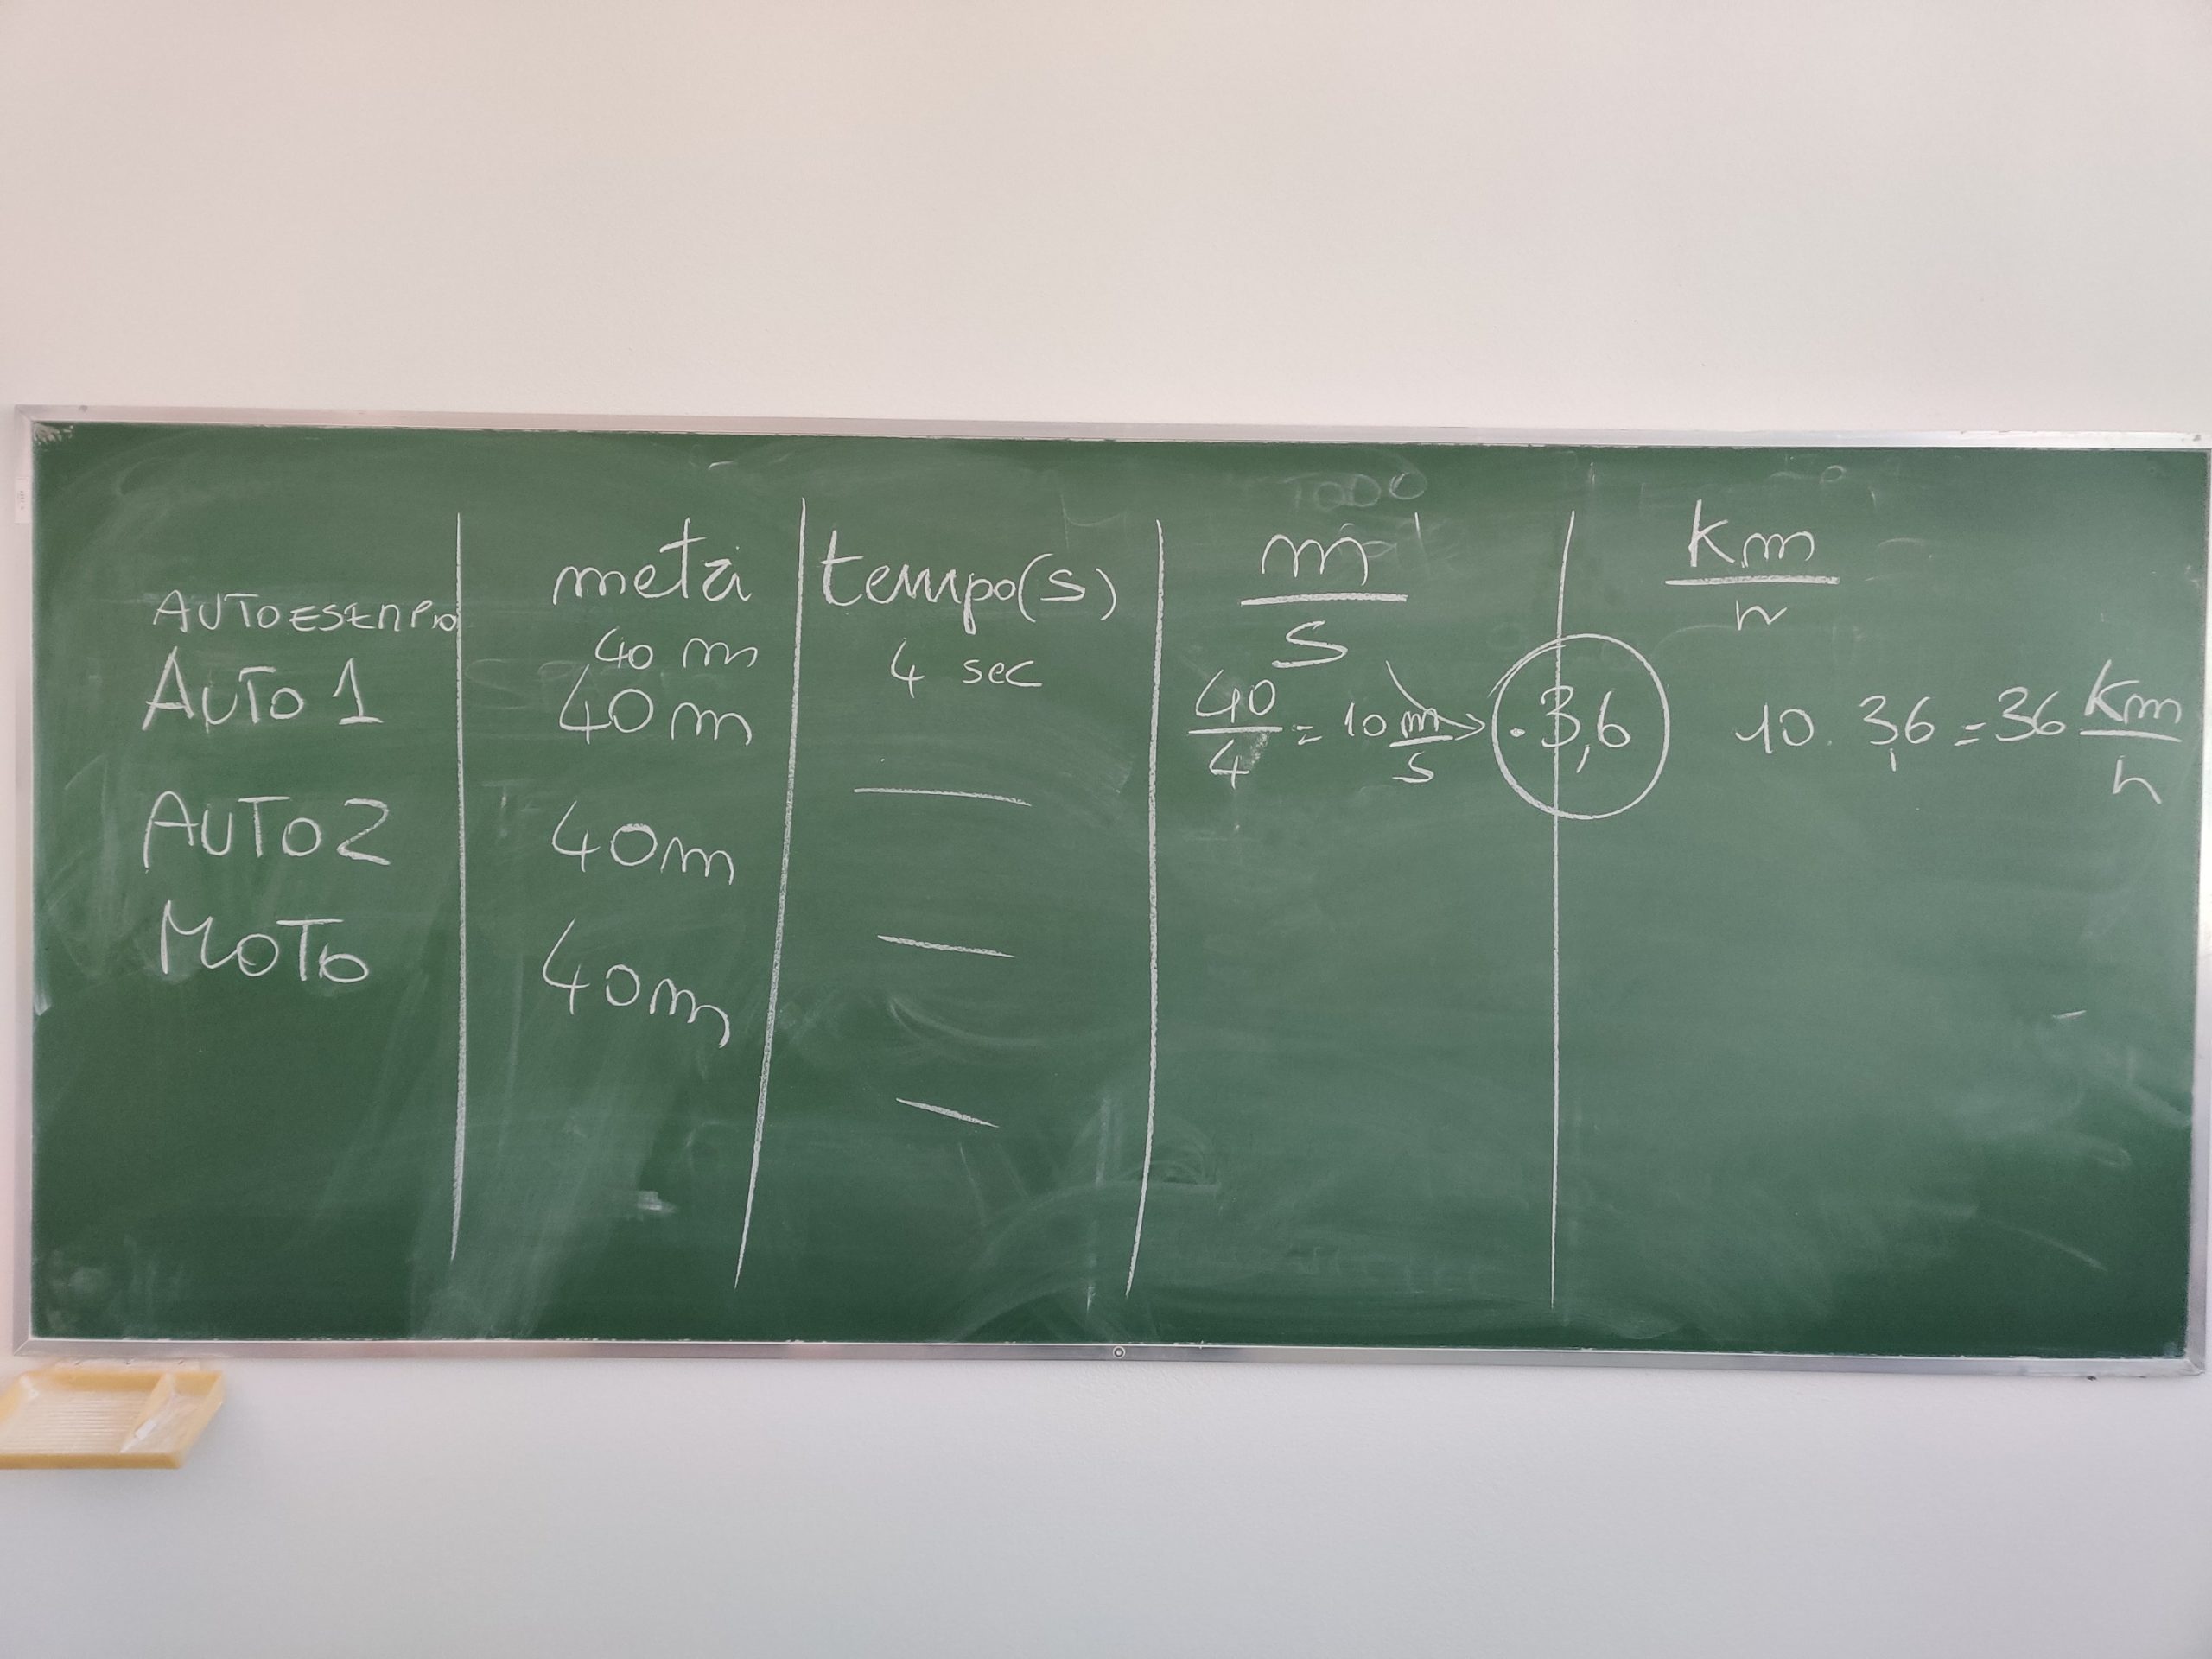 metri tempo(s) m/s Km/h
AUTOESEMPIO 40 m 4 sec 40/4 = 10 m/s → · 3,6 10 · 3,6 = 36 Km/h
AUTO 1 40 m
AUTO 2 40m
MOTO 40m